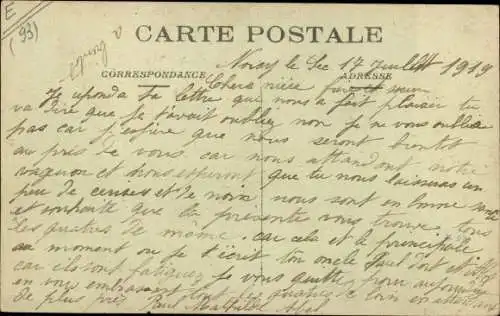 E
(93)
épinay
CARTE POSTALE
Noisy le Sec 17 Juillet 1919
CORRESPONDANCE
ADRESSE
Chers nièce
Je reponds a ta lettre que nous a fait plaisir tu
va dire que je t'avait oubliez non je ne vous oublie
pas car j'espère que nous seront bientot
au près de vous car nous attandont notre
wagon et nous espéront que tu nous laisseras un
peu de cerises et de noix nous sont en bonne santé
et souhaite que la présente vous trouve tous
les quatres de meme. car cela et le principale
au moment ou je t'écrit ton oncle Paul dort et
car ils sont fatiguez je vous quitte pour aujourd'hui
en vous embrassant tout les quatres de loin en attendant
de plus près Paul Mathilde